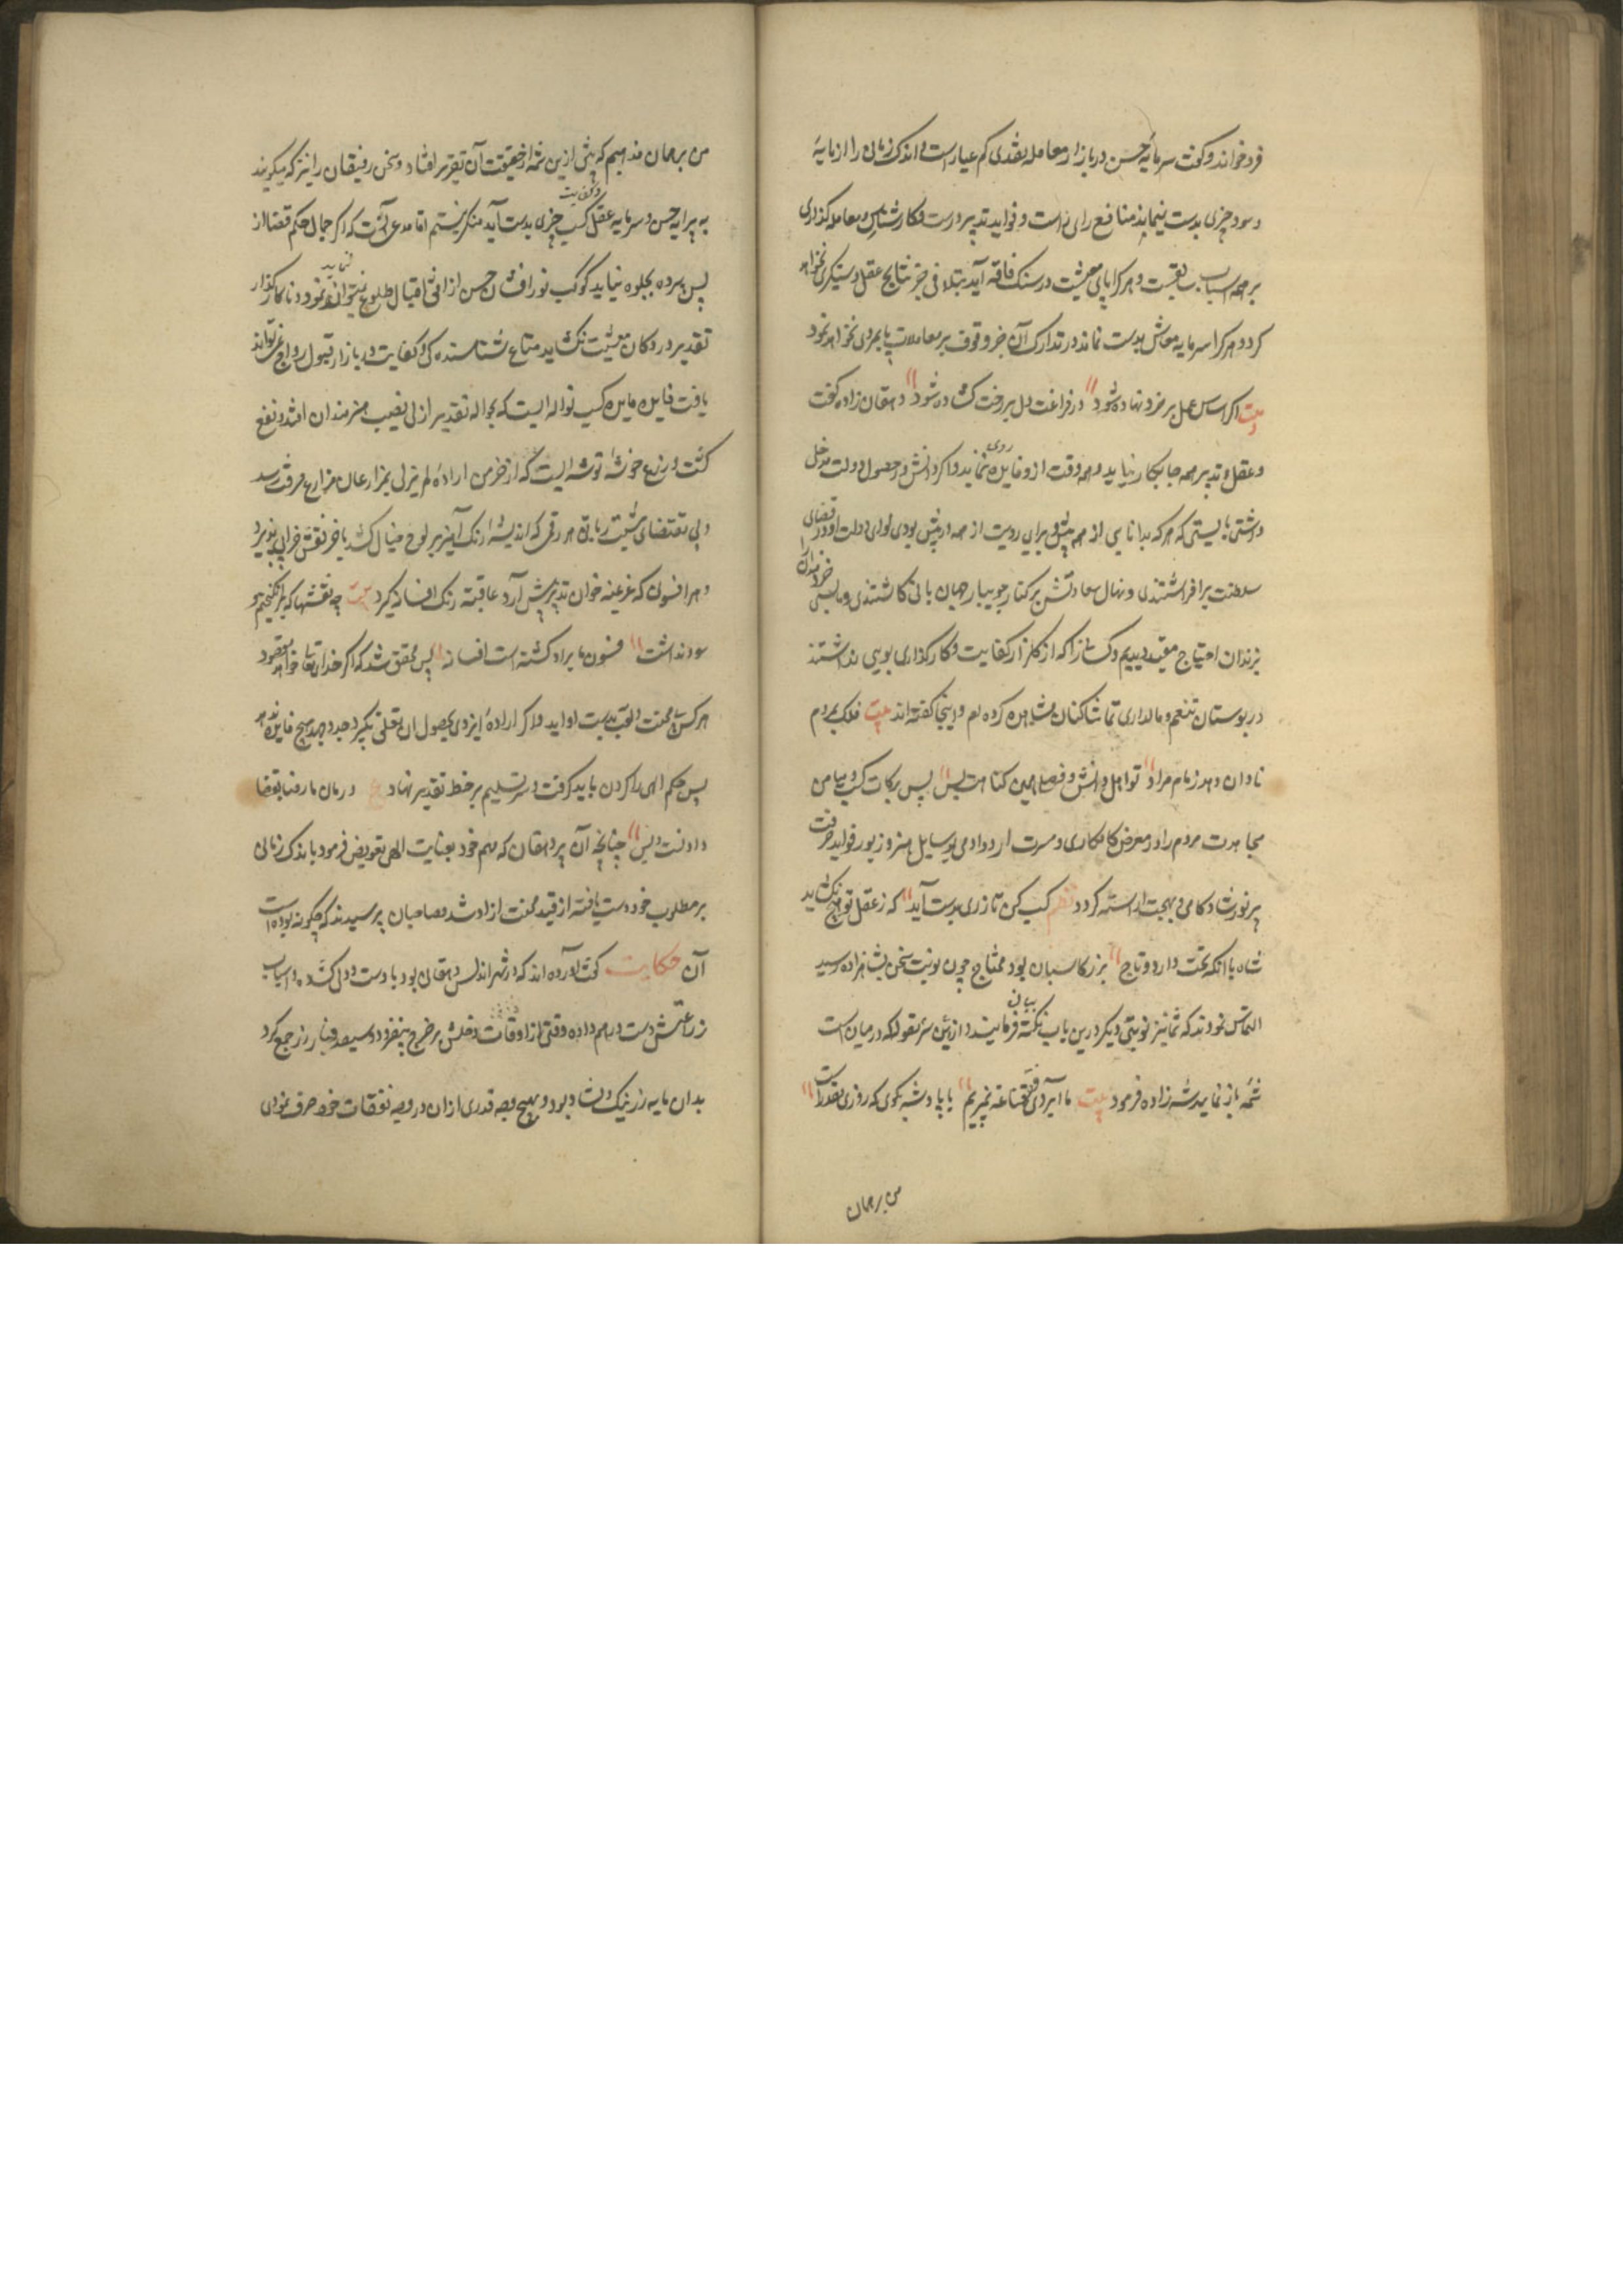 فرو خواند و گفت سرمایه حسن در بازار معامله نقدی کم عیار است و اندک زمانی را از مایهٔ
و سود چیزی بدست نیماند منافع رای راست و فواید تدبیر درست و کارشناسی و معامله گذاری
بر همه اسباب سابقست و هر کرا پای معیشت در سنگ فاقه آید بتلافی جز نتایج عقل دستگیری نخواهد
کرد و هر کرا سرمایه معاش بدست نماند در تدارک آن جز وقوف بر معاملات پایمردی نخواهد نمود
بیت اگر اساس عمل بر خرد نهاده شود در فراغت دل بر رخت گشاده شود دهقان زاده گفت
و عقل و تدبیر همه جا بکار نیاید و همه وقت ازو فایده روی ننماید و اگر دانش در حصول دولت مدخل
داشتی بایستی که هر که بدانایی از همه بیش و برای و رویت از همه در پیش بودی لوای دولت او در فضای
سلطنت برافراشتندی و نهال سعادتش بر کنار جویبار جهان بانی کاشتندی و ما بسی خردمندان را
بزندان احتیاج مقید دیدیم و کسانرا که از گلزار کفایت و کارگذاری بویی نداشتند
در بوستان تنعم و مالداری تماشاکنان مشاهده کرده ایم و اینجا گفته اند بیت فلک بمردم
نادان دهد زمام مراد تو اهل دانش و فضلی همین گناهت بس پس برکات کسب و میامن
مجاهدت مردم را در معرض کامکاری و مسرت آرد و آدمی بوسایل هنر و زیور فواید حرفت
بر نورشاد کامی و بهجت آراسته گردد نظم کسب کن تا زری بدست آید که ز عقل تو هیچ نگشاید
شاه با آنکه تخت دارد و تاج بزر کاسبان بود محتاج چون نوبت سخن بشاهزاده رسید
التماس نمودند که شما نیز نوبتی دیگر درین باب نکته بیان فرمایند و ازین سر مقوله که در میان است
شمه باز نمایید شه زاده فرمود بیت ما آبروی فقر و قناعت نمیبریم با پادشه بگوی که روزی مقدر است
من بر همان
من بر همان مذهبم که پیش ازین شمه از حقیقت آن تقریر افتاد و سخن رفیقان را نیز که میگویند
به پیرایه حسن و سرمایه عقل و کفایت کسب چیزی بدست آید منکر نیستم اما مدعی آنست که اگر جمال حکم قضا از
پس پرده بجلوه نیاید کوکب نورافشان حسن از افق اقبال طلوع نتواند نمود و تا کارگذار
تقدیر در دکان معیشت نگشاید متاع شناسندگی و کفایت در بازار قبول رواج نمی تواند
یافت فایده مایده کسب نواله ایست که بحواله تقدیر ازلی نصیب هنرمندان افتد و نفع
کشت و زرع خوشهٔ توشه ایست که از خرمن ارادهٔ لم یزلی بمزارعان مزارع حرفت رسد
و بی تقتضای مشیت ربانی هر رقمی که اندیشه رنگ آمیز بر لوح خیال کشد بآخر نقش خرابی پذیرد
و هر افسون که عزیمه خوان تدبیر پیش آرد عاقبت رنگ افسانه گیرد بیت چه نقشها که برانگیختیم و
سود نداشت فسون ما بر او گشته است افسانه پس محقق شد که اگر خدای تعالی خواهد مقصود
هر کس بی محنت و تعب بدست او آید و اگر ارادهٔ ایزدی بحصول آن تعلق نگیرد جد و جهد هیچ فایده ندهد
پس حکم الهی را گردن باید گرفت و سر تسلیم بر خط تقدیر نهاد ع درمان ما رضا بقضا
دادنست و بس چنانچه آن پیر دهقان که مهم خود بعنایت الهی تفویض فرمود باندک زمانی
بر مطلوب خود دست یافته از قید محنت آزاد شد مصاحبان پرسیدند که چگونه بوده است
آن حکایت گفت آورده اند که در شهر اندلس دهقانی بود با دست و دلی گشاده و اسباب
زراعتش دست درهم داده وقتی از اوقات دخلش بر خرج بیفزود و سیصد دینار زر جمع کرد
بدان مایه زر نیک دلشاد بود و بهیچ وجه قدری ازان در وجه نفقات خود صرف نمودی